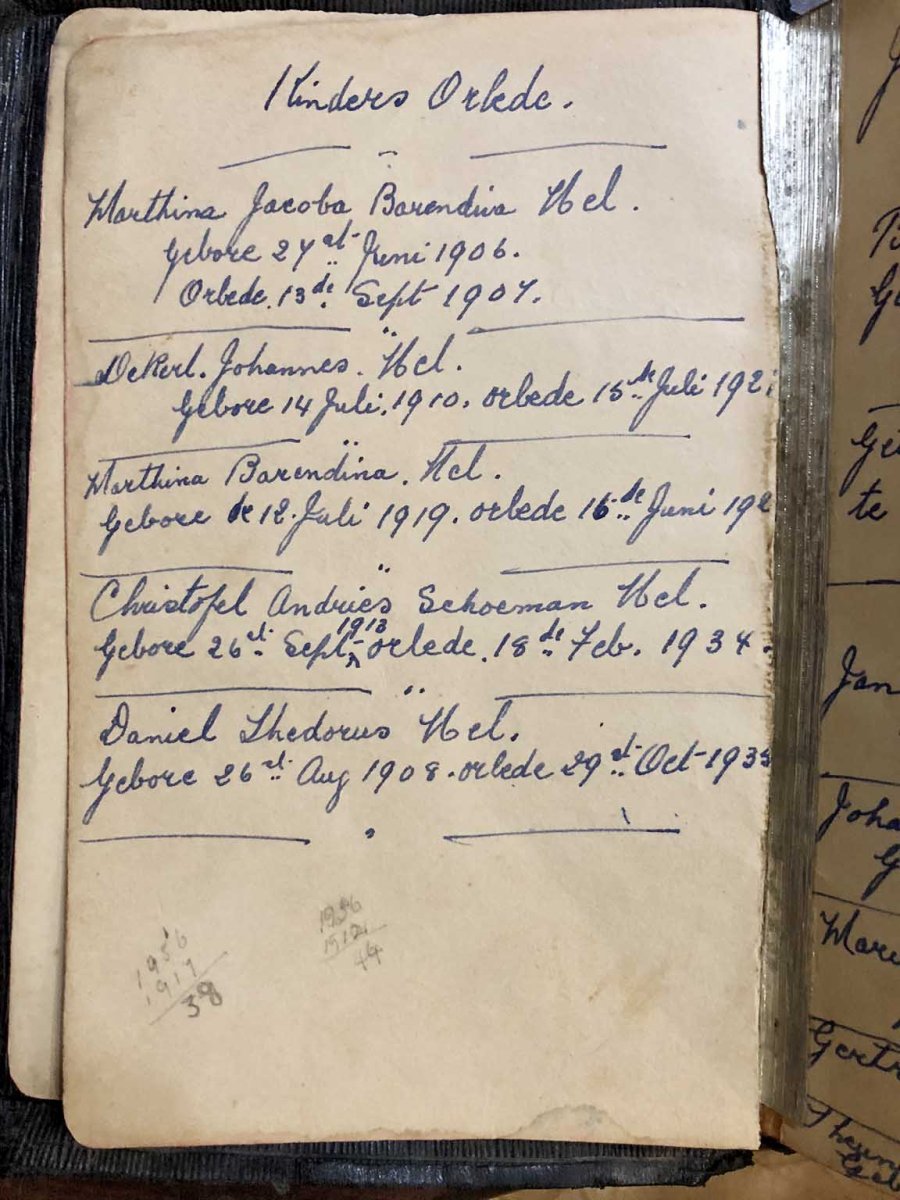 Kinders Orlede.
Marthina Jacoba Barendina Nel.
Gebore 27st Juni 1906.
Orlede 13de Sept 1907.
Johannes. Nel.
Gebore 14 Juli. 1910. orlede 15de Juli 192
Marthina Barendina. Nel.
Gebore de 12. Juli 1919. orlede 16de Juni 192
Christofel Andries Schoeman Nel.
1913
Gebore 26st Sept orlede 18de Feb. 1934.
Daniel Thedorus Nel.
Gebore 26st Aug 1908. orlede 29st Oct 193
1956
44
38
te
Jan
Joha
G
Mar
Gertr